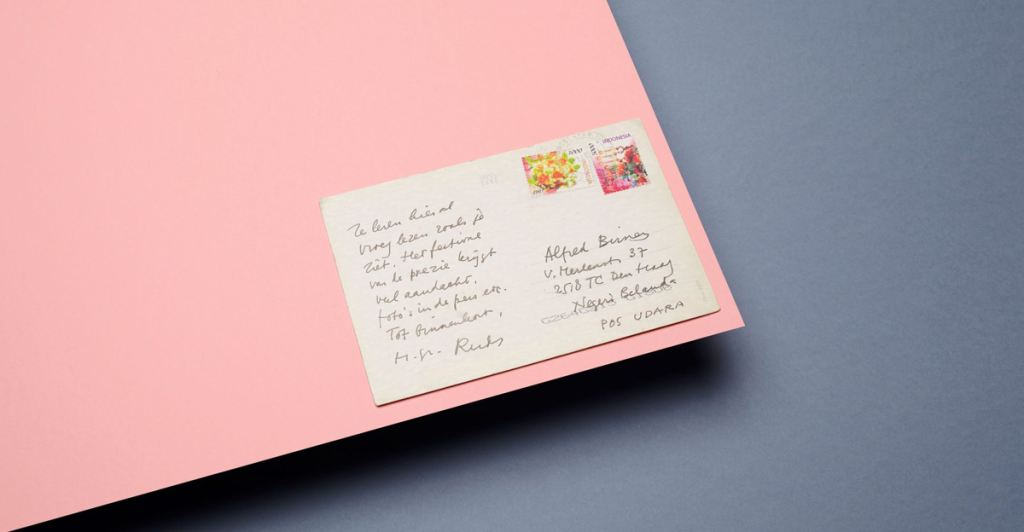 Ze leren hier al
vroeg lezen zoals je
ziet. Het festival
van de poëzie krijgt
veel aandacht.
foto's in de pers etc.
Tot binnenkort,
H.gr.
INDONESIA
Alfred Birney
v. Merlenstr 37
2518 TC Den Haag
Negeri Belanda
POS UDARA